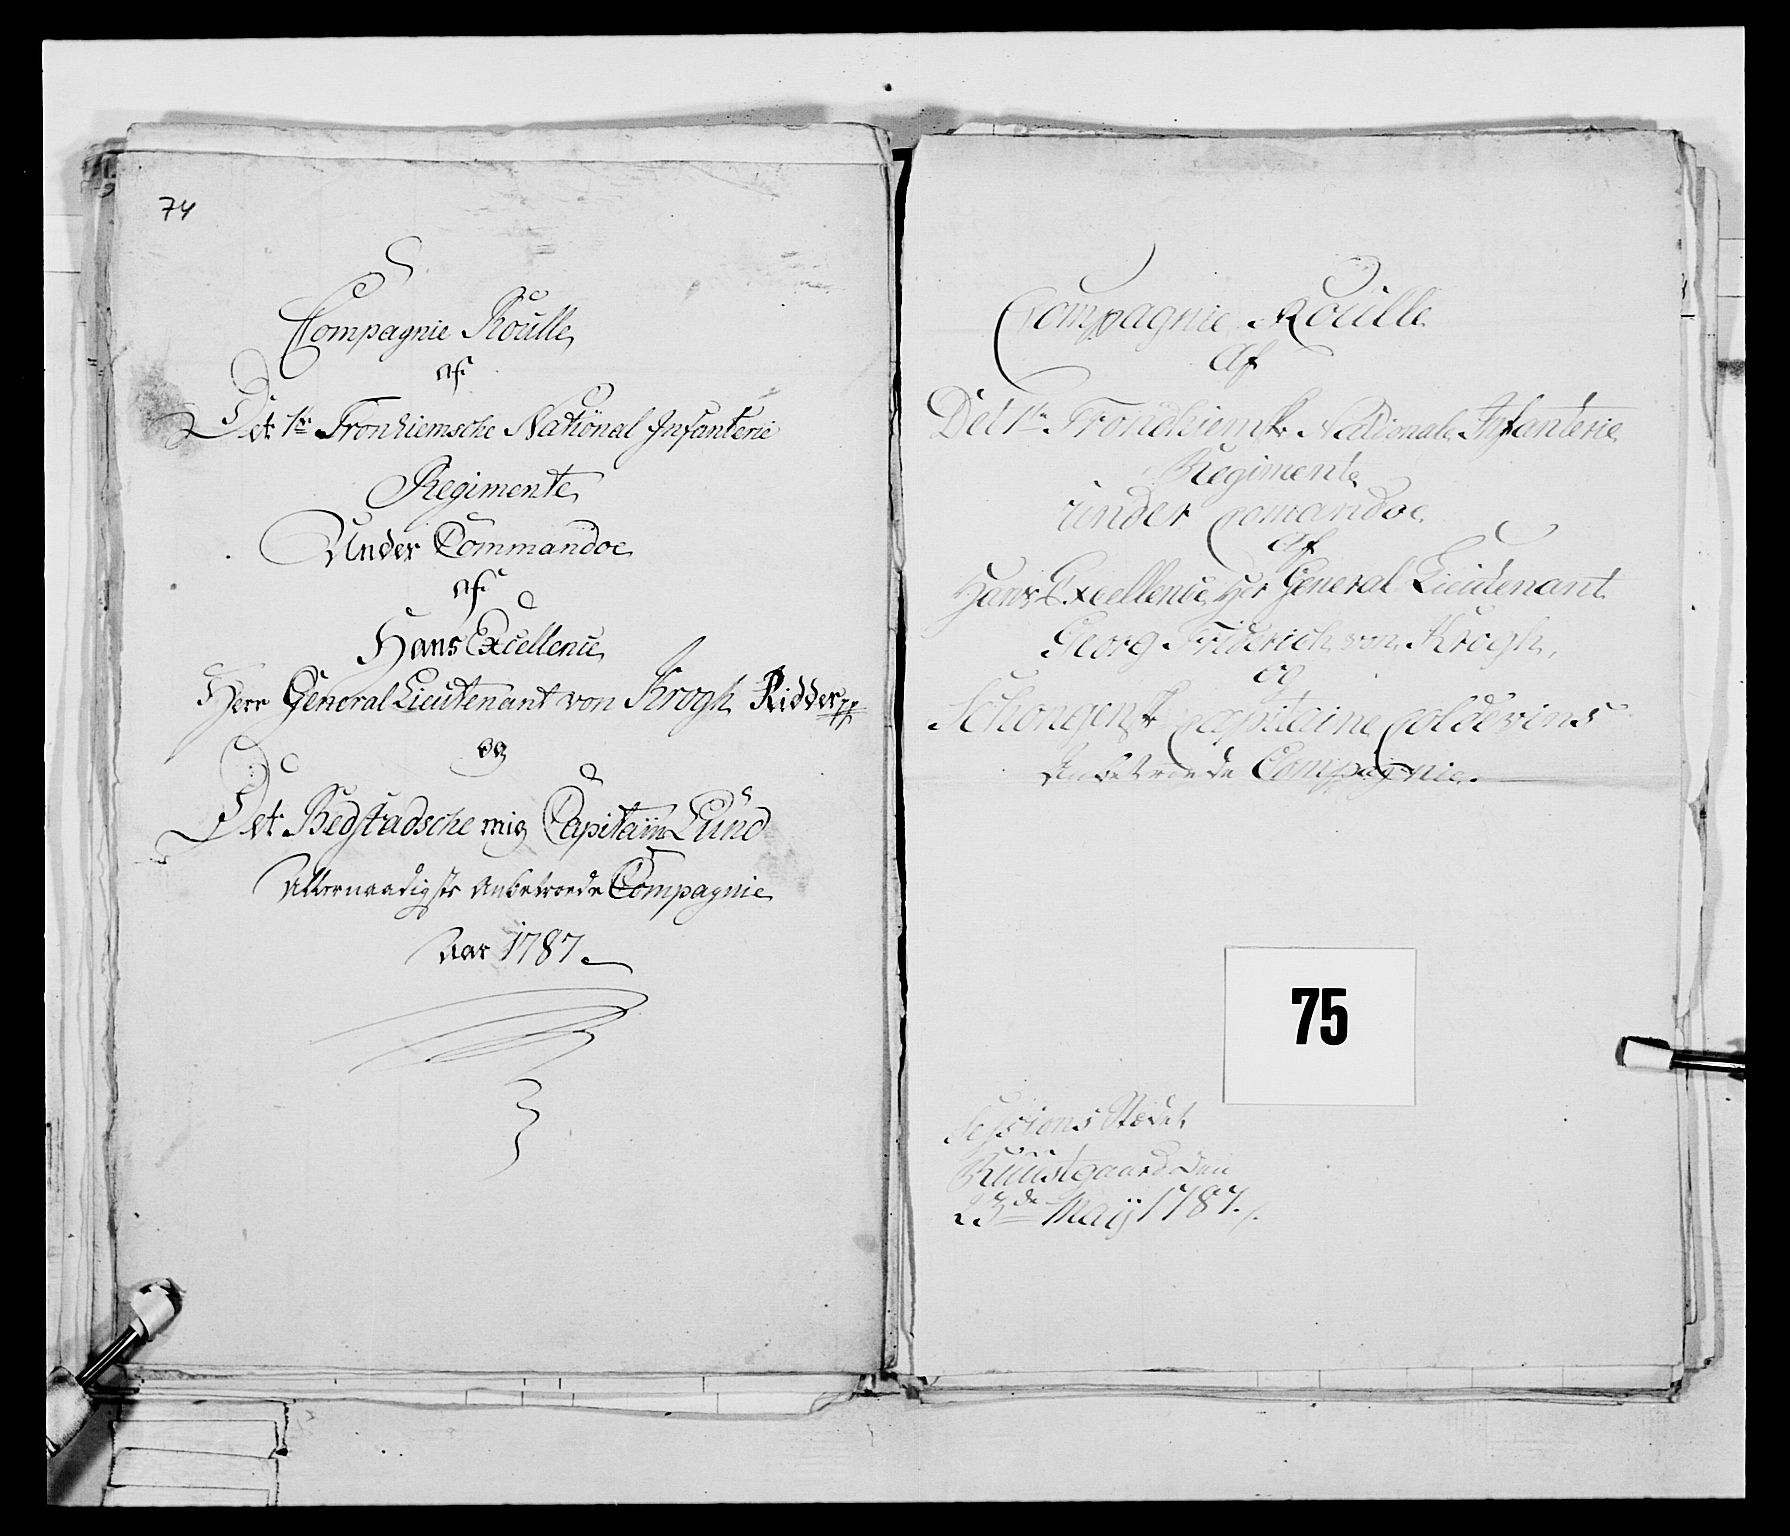 74
Compagnie Roulle
af
Det 1te Tronhiemsche National Infanterie
Regimente
Under Commandoe
af
Hans Excellence
Herr General Lieutenant von Krogh Ridder pp
og
Det Bedstadsche mig Capitain Lund
Allernaadigste Anbetroede Compagnie
Aar 1787
Compagnie Roulle
Af
Det 1te Trondhiemsk Nationale Infanterie
Regimente
under Comandoe
af
Hans Excellence Her General Lieutenant
Georg Friderich von Krogh,
og
Schongensk Capitaine Coldevins
Anbetroede Compagnie.
75
Sessions Stædet
Ruustgaard den
23de Maÿ 1787./.